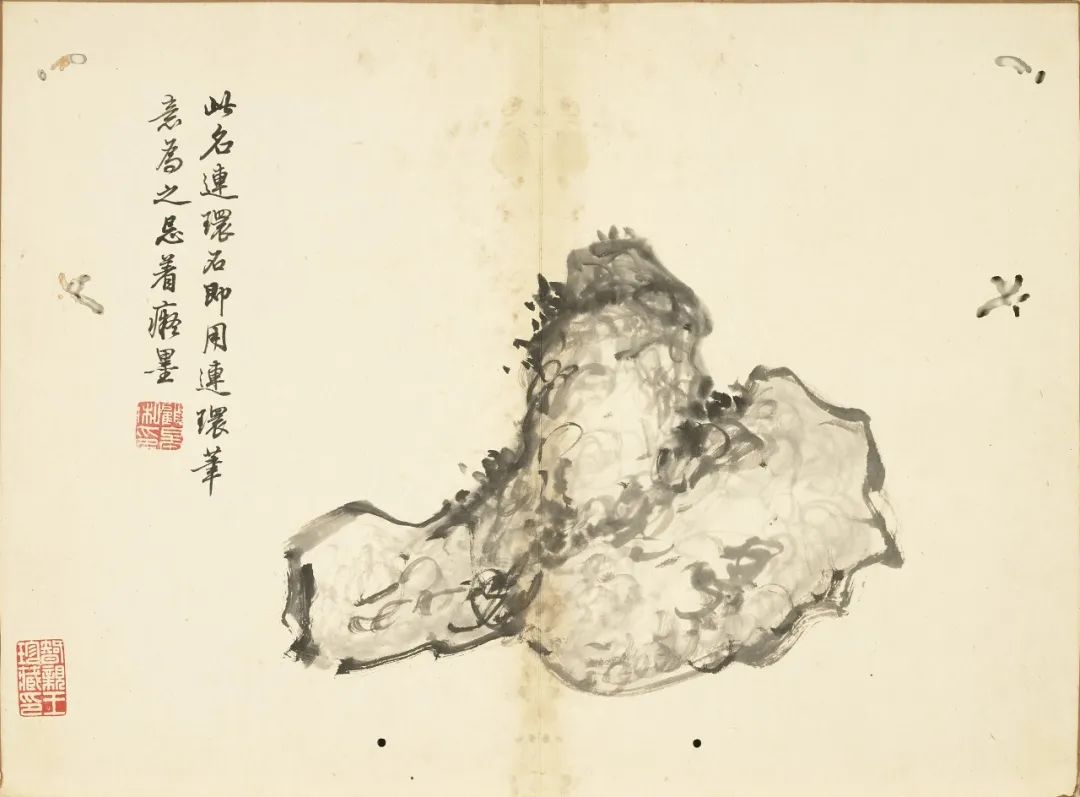 此名連環石即用連環筆
意為之忌着癡墨
智親王
珍藏印